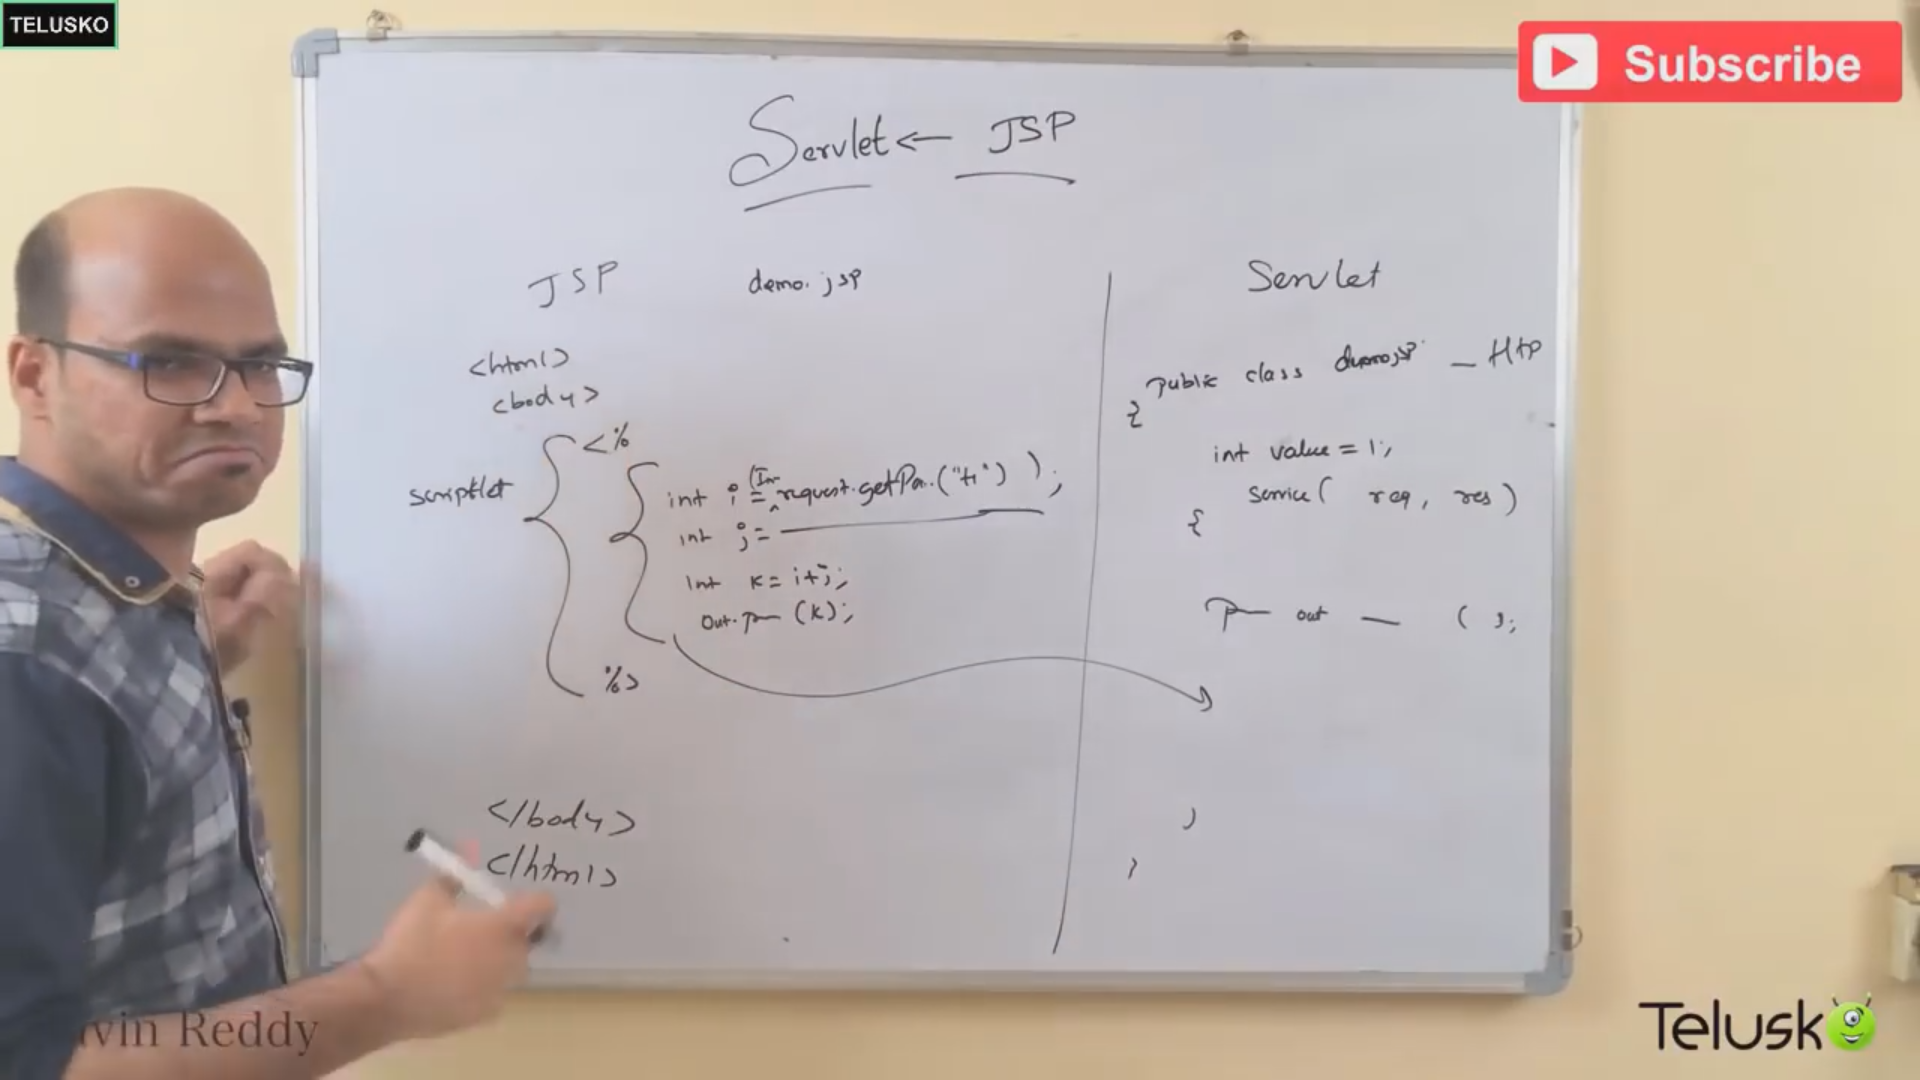 TELUSKO
Subscribe
Servlet ← JSP
JSP demo.jsp
<html>
<body>
scriptlet
<%
int i = (In request.getPa.("t1") );
int j =
int k = i+j;
out.p (k);
%>
</body>
</html>
Servlet
public class demojsp — Http
{
int value = 1;
service( req, res)
{
P out — ( );
}
}
vin Reddy
Telusko